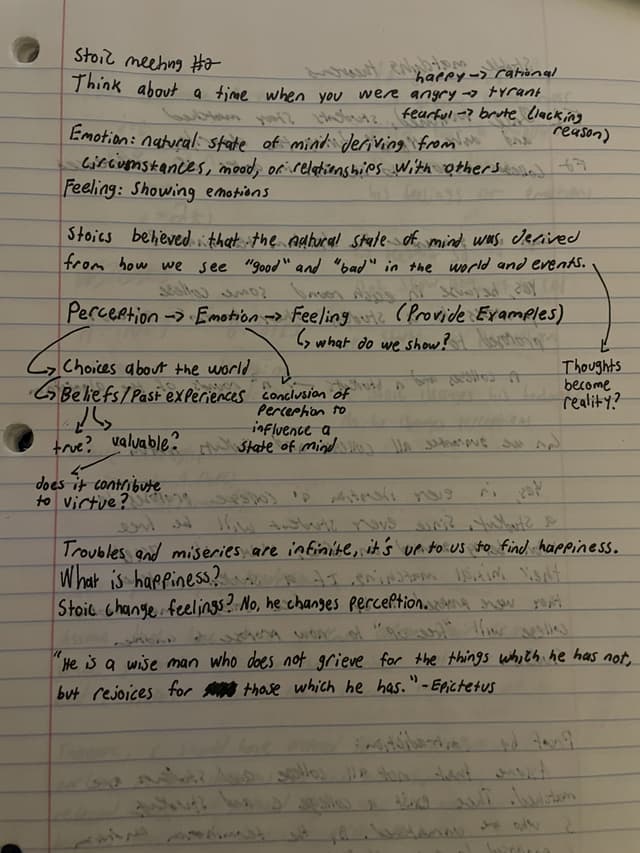 Stoic meeting #2
happy → rational
Think about a time when you were angry → tyrant
fearful → brute (lacking
reason)
Emotion: natural state of mind deriving from
circumstances, mood, or relationships with others
Feeling: Showing emotions
Stoics believed that the natural state of mind was derived
from how we see "good" and "bad" in the world and events.
Perception → Emotion → Feeling (Provide Examples)
↳ what do we show?
Thoughts
become
reality?
Choices about the world
Beliefs/Past experiences
conclusion of
Perception to
influence a
state of mind
true? valuable?
does it contribute
to virtue?
Troubles and miseries are infinite, it's up to us to find happiness.
What is happiness?
Stoic change feelings? No, he changes perception.
"He is a wise man who does not grieve for the things which he has not,
but rejoices for those which he has." - Epictetus